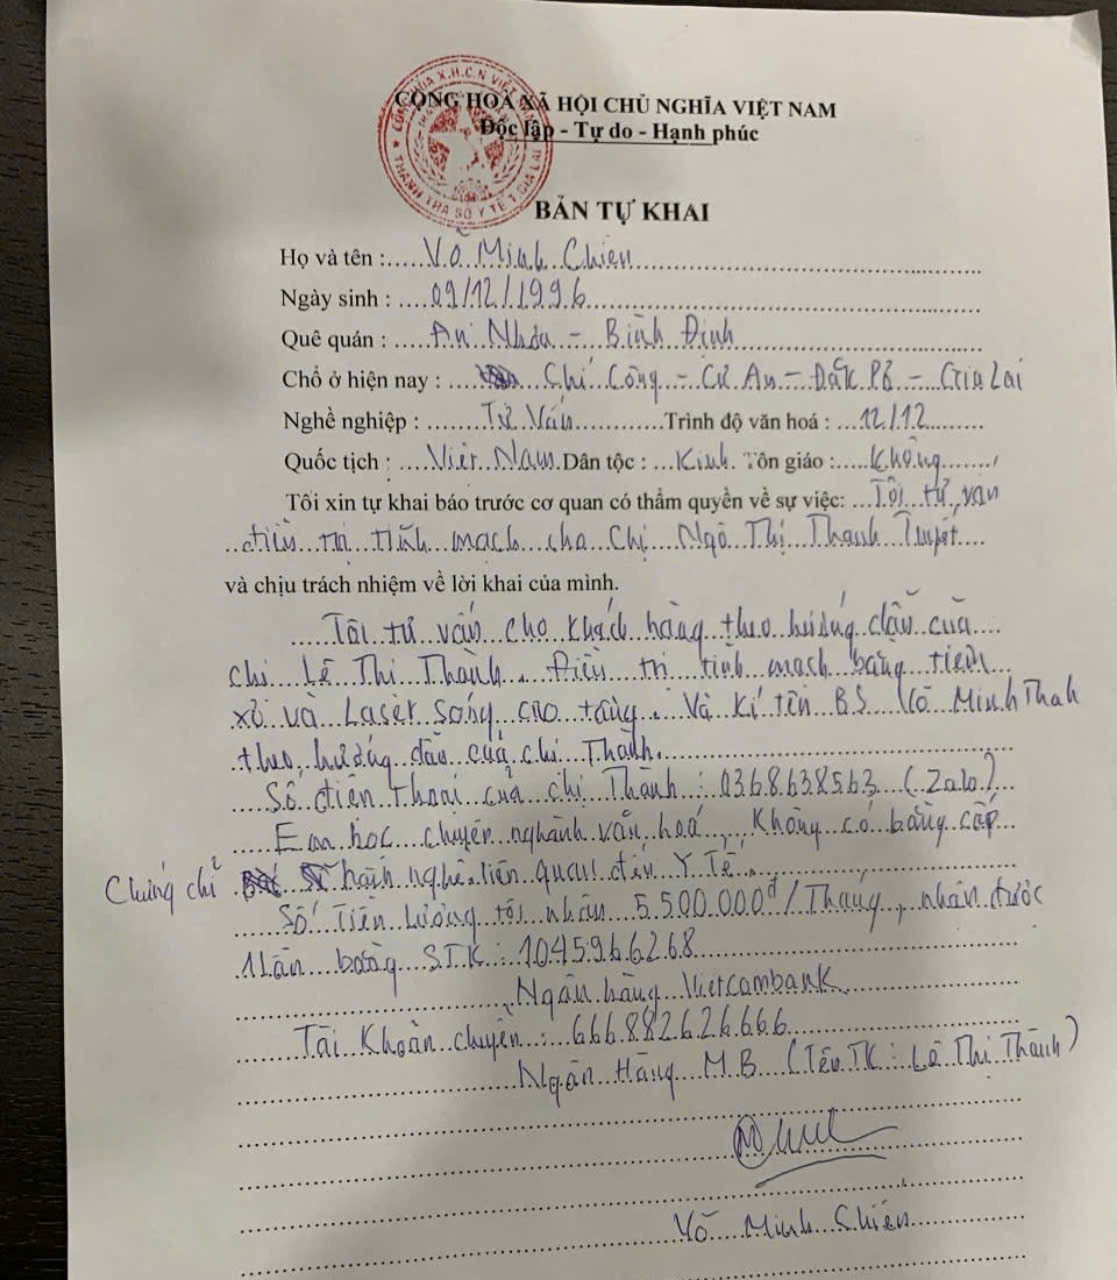 CỘNG HOÀ XÃ HỘI CHỦ NGHĨA VIỆT NAM
Độc lập - Tự do - Hạnh phúc
THANH TRA SỞ Y TẾ T.GIA LAI
BẢN TỰ KHAI
Họ và tên : Võ Minh Chiến
Ngày sinh : 09/12/1996
Quê quán : An Nhơn - Bình Định
Chổ ở hiện nay : Chí Công - Cư An - Đăk Pơ - Gia Lai
Nghề nghiệp : Tư Vấn Trình độ văn hoá : 12/12
Quốc tịch : Việt Nam Dân tộc : Kinh Tôn giáo : Không
Tôi xin tự khai báo trước cơ quan có thẩm quyền về sự việc: Tôi tư vấn
điều trị tĩnh mạch cho chị Ngô Thị Thanh Tuyết
và chịu trách nhiệm về lời khai của mình.
Tôi tư vấn cho khách hàng theo hướng dẫn của
chị Lê Thị Thành. Điều trị tĩnh mạch bằng tiêm
xơ và Laser sóng cao tầng. Và kí tên BS Võ Minh Thah
theo hướng dẫn của chị Thành.
Số điện thoại của chị Thành : 0368638563 (Zalo)
Em học chuyên nghành văn hoá, không có bằng cấp
Chứng chỉ hành nghề liên quan đến Y Tế.
Số tiền lương tôi nhận 5.500.000đ/Tháng, nhận được
1 lần bằng STK : 1045966268
Ngân hàng Vietcombank
Tài Khoản chuyển : 666882626666
Ngân Hàng MB (Tên TK : Lê Thị Thành)
Võ Minh Chiến